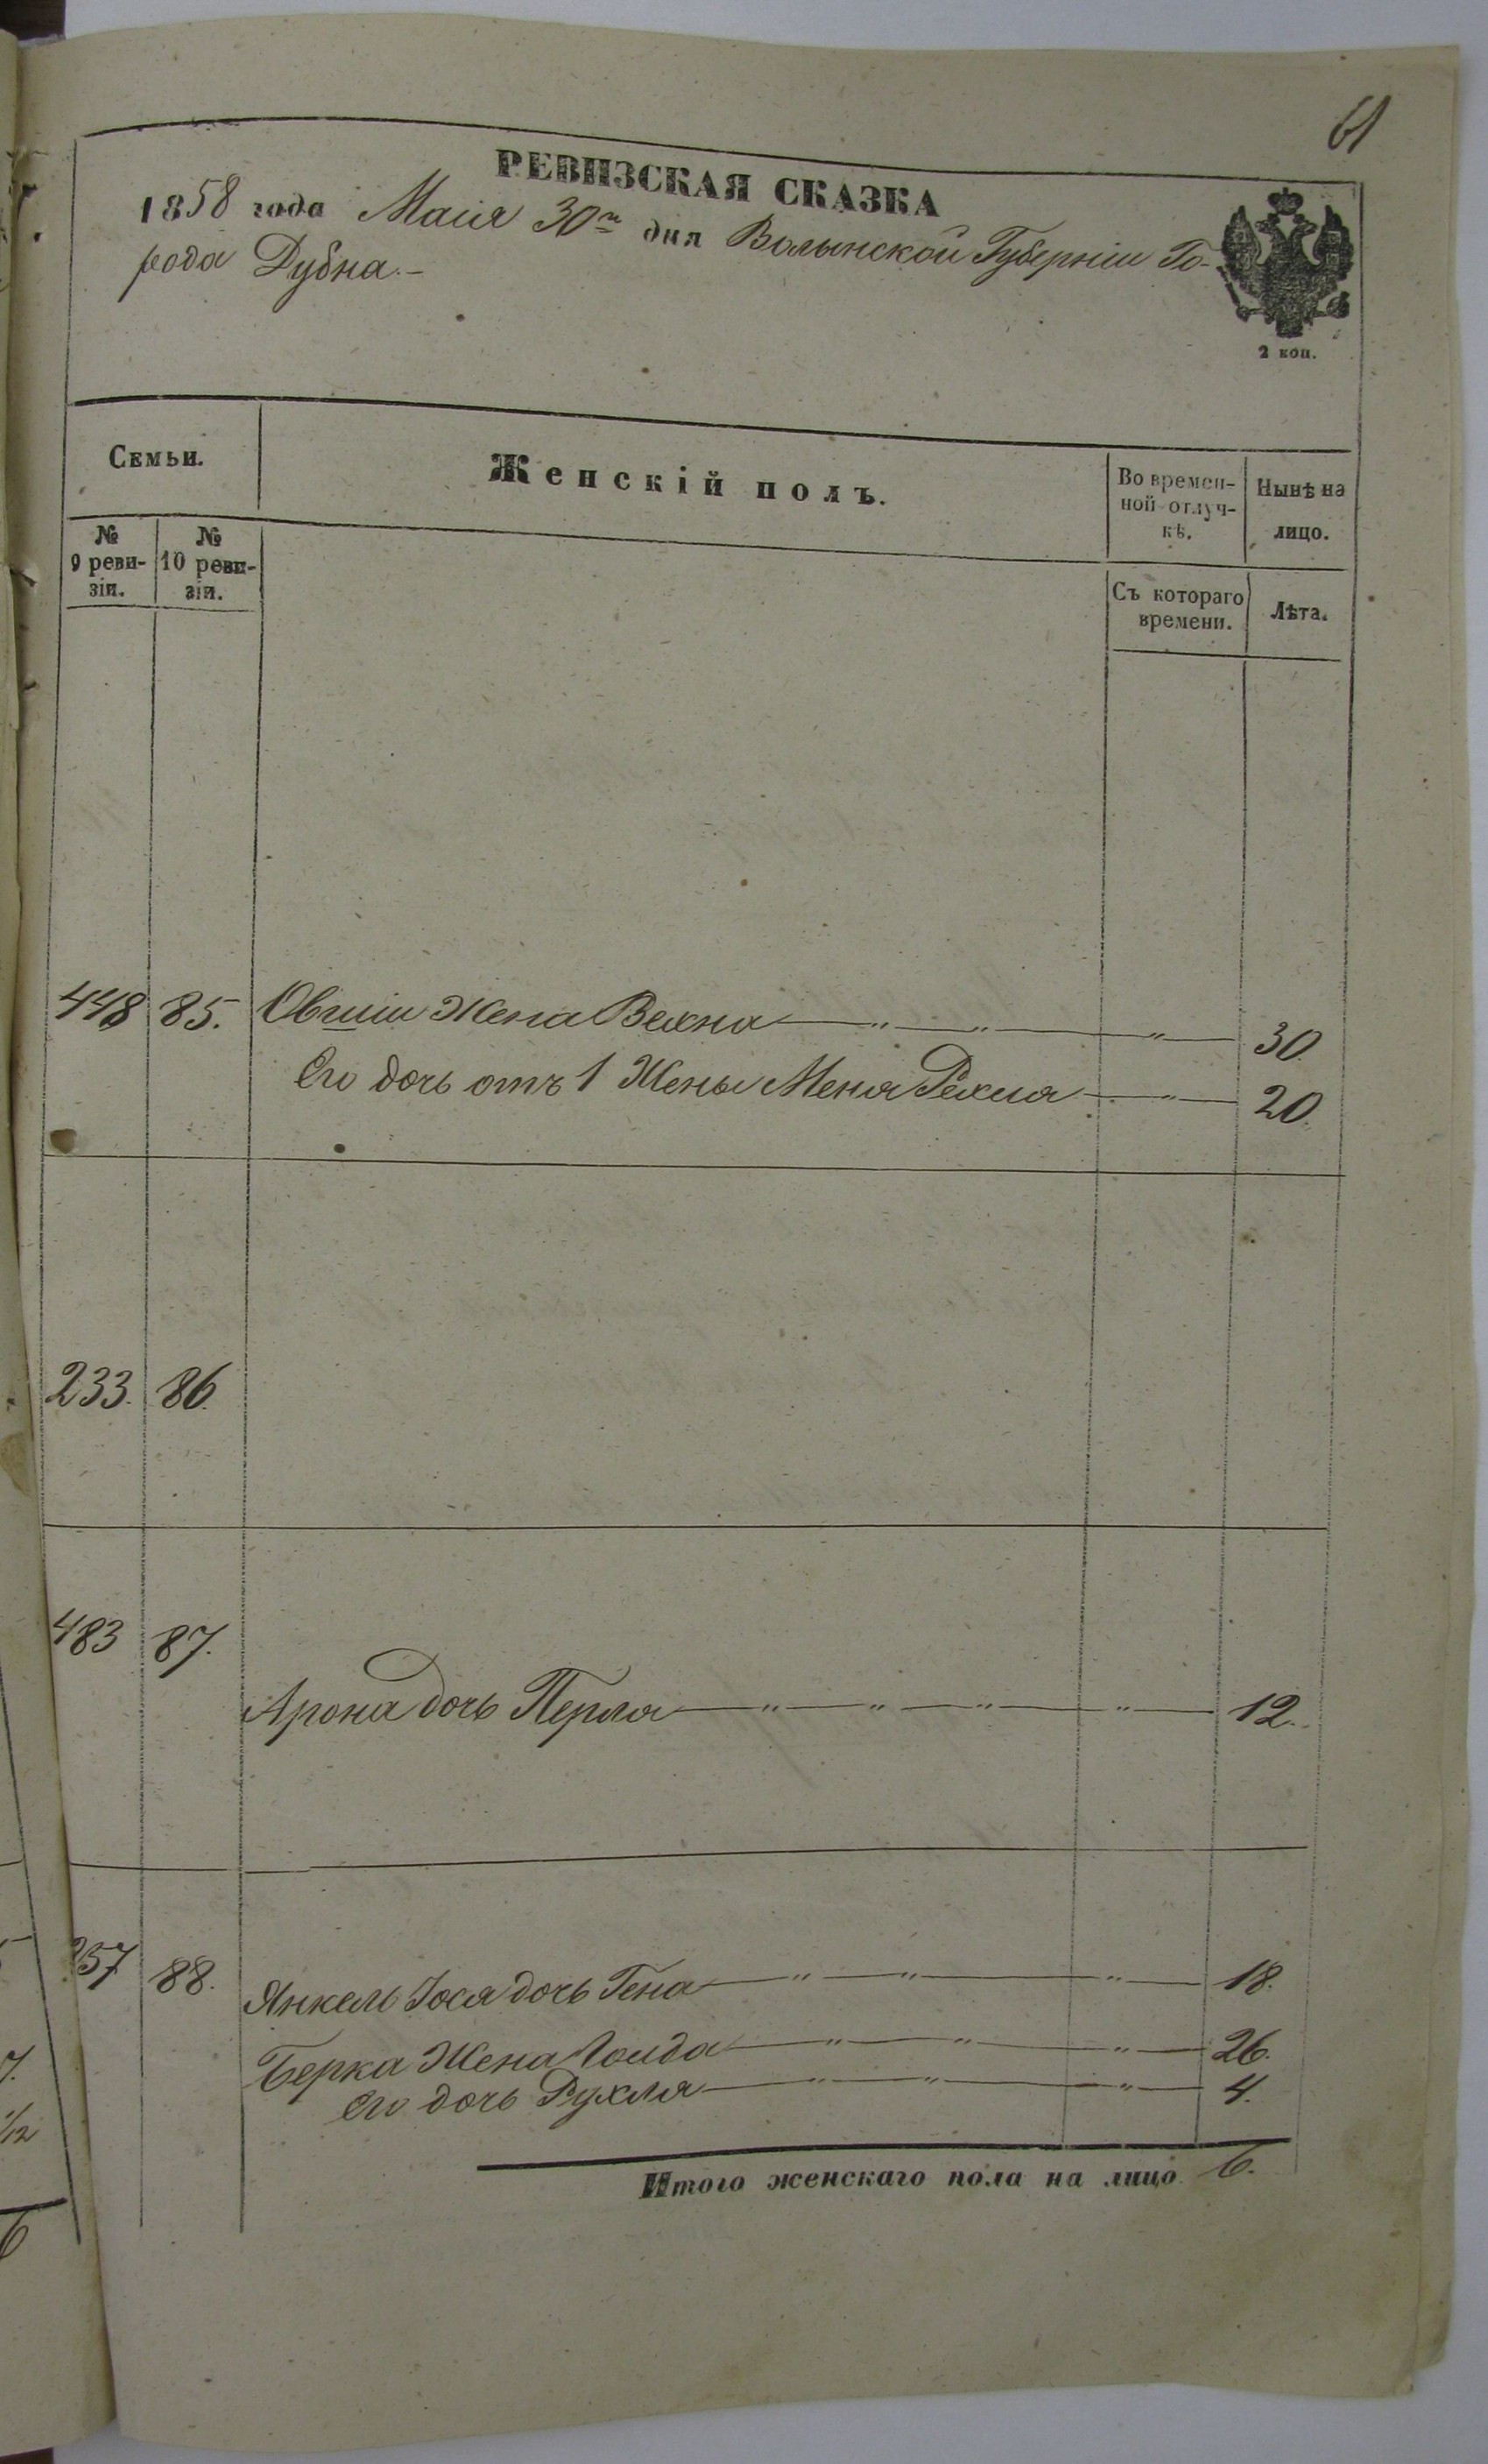 61
РЕВИЗСКАЯ СКАЗКА
1858 года Маія 30го дня Волынской Губерніи Го-
рода Дубна.-
2 коп.
Семьи.
Женскій полъ.
Во времен-
ной отлуч-
кѣ.
Нынѣ на
лицо.
№
9 реви-
зіи.
№
10 реви-
зіи.
Съ котораго
времени.
Лѣта.
448 85. Овшіи Жена Вехна — " — " — " — 30.
Его дочь отъ 1 Жены Меня Рехля — " — 20.
233. 86.
483 87.
Арона дочь Перля — " — " — " — " — 12.
257 88. Янкель Іося дочь Гена — " — " — " — 18.
Берка Жена Гоıда — " — " — " — 26.
его дочь Рухля — " — " — " — 4.
Итого женскаго пола на лицо 6.